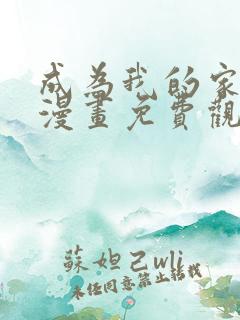 成為我的家
漫畫免費觀
蘇妲己wli
未经同意禁止转载